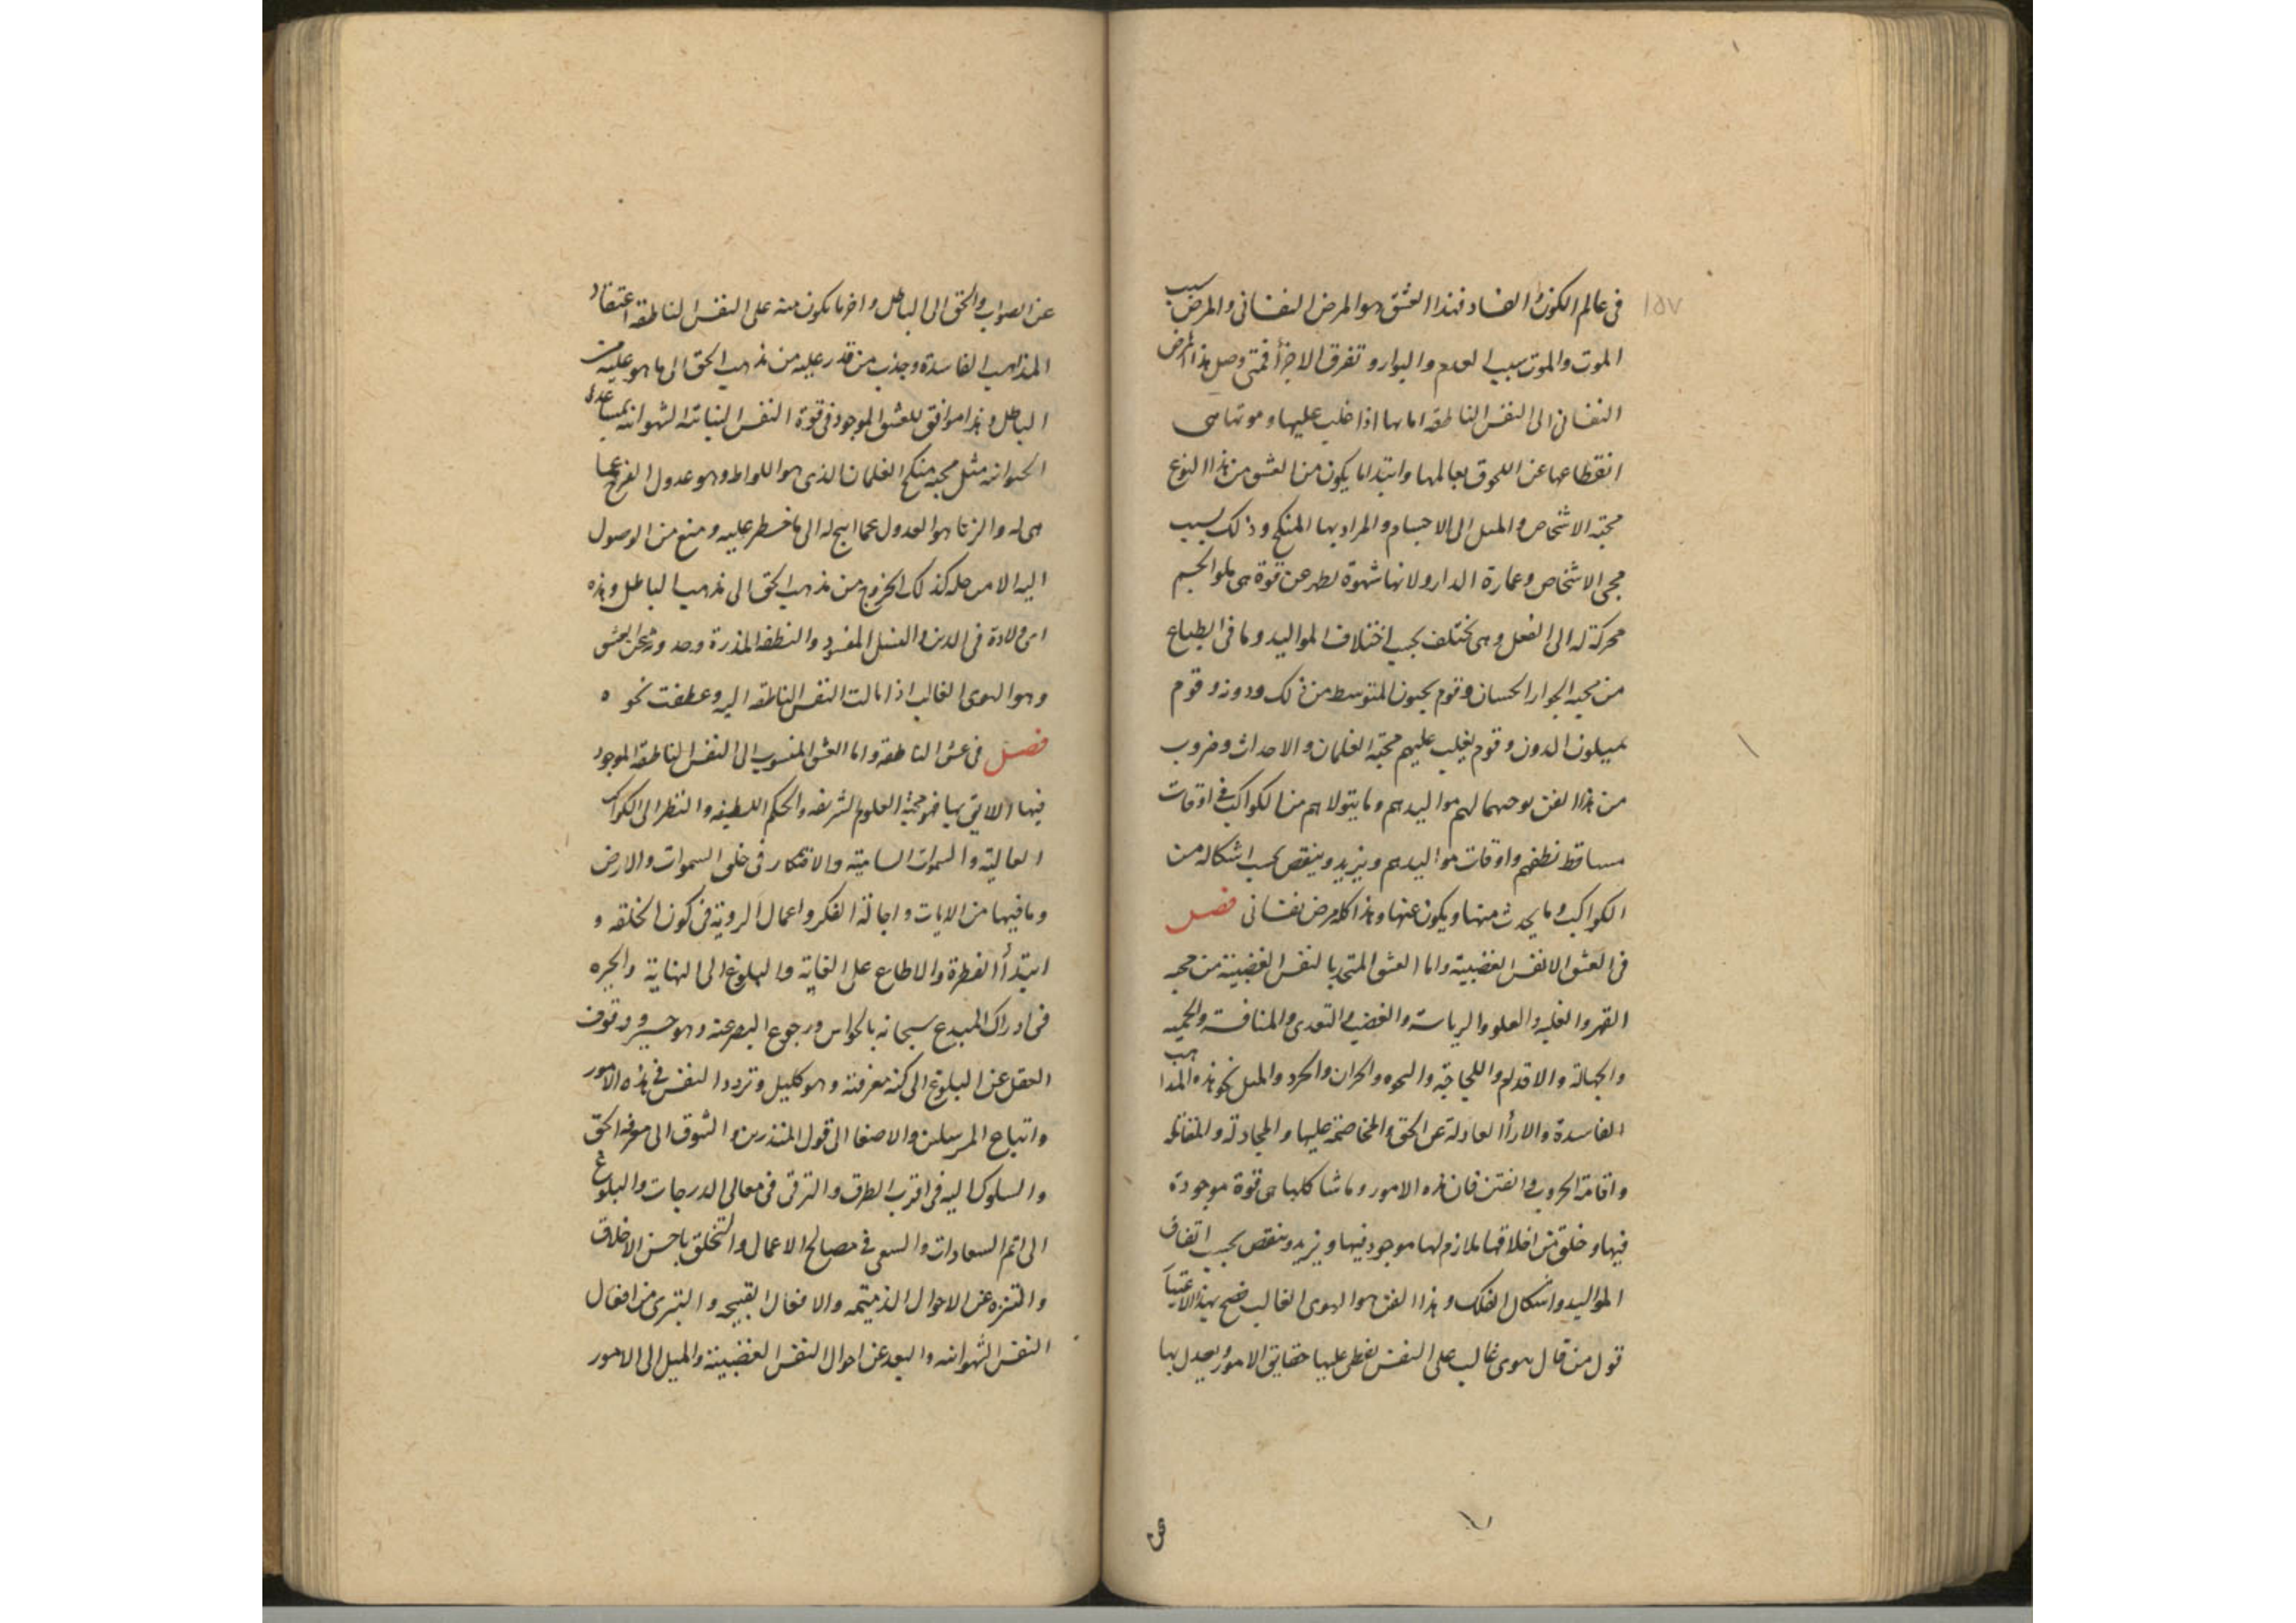 ١٥٧
في عالم الكون والفساد فهذا العشق هو المرض النفسانى والمرض سبب
الموت والموت سبب العدم والبوار وتفرق الاجزأ فمتى وصل هذا المرض
النفسانى الى النفس الناطقه اماتها اذا غلب عليها وموتها هى
انقطاعها عن اللحوق بعالمها وابتدا ما يكون من العشق من هذا النوع
محبّة الاشخاص والميل الى الاجسام والمراد بها المنكح وذلك بسبب
مجى الاشخاص وعمارة الدار ولانها شهوة تظهر عن قوة هى تملو الجسم
محركة له الى الفعل وهى تختلف بحسب اختلاف المواليد وما فى الطباع
من محبه الجوار الحسان وقوم يحبون المتوسط من ذلك ودونه وقوم
يميلون الدون وقوم يغلب عليهم محبّة الغلمان والاحداث وضروب
من هذا الفن توجبها لهم مواليدهم وما يتولاهم من الكواكب فى اوقات
مساقط نطفهم واوقات مواليدهم ويزيد وينقص بحسب اشكاله من
الكواكب وما يحدث منها ويكون عنها وهذا كله مرض نفسانى فصل
فى العشق الانفس الغضبية واما العشق المتحد بالنفس الغضبية من محبه
القهر والغلبه والعلو والرياسة والغضب والتعدى والمنافسة والحميه
والجهالة والاقدام واللجاجة والحران والحرد والميل نحو هذه المذاهب
الفاسدة والارأ العادلة عن الحق والمخاصمة عليها والمجادلة والمغالطه
واقامة الحروب والفتن فان هذه الامور وما شاكلها هى قوة موجودة
فيها وخلق من اخلاقها ملازم لها موجود فيها ويزيد وينقص بحسب اتفاق
المواليد واشكال الفلك وهذا الفن هو الهوى الغالب فصح بهذا الاعتبار
قول من قال هوى غالب على النفس يغطى عليها حقايق الامور يعدل بها
عن الصواب والحق الى الباطل واخر ما يكون منه على النفس الناطقه اعتقاد
المذاهب الفاسدة وجذب من قدر عليه من مذهب الحق الى ما هو عليه من
الباطل وهذا موافق للعشق الموجود فى قوة النفس النباتية الشهوانيه بمساعدة
الحيوانيه مثل محبه منكح الغلمان الذى هو اللواط وهو عدول الفرج عما
هى له والزنا هو العدول عما ابيح له الى ما خطر عليه ومنع من الوصول
اليه الا من حله كذلك الخروج من مذهب الحق الى مذهب الباطل وهذه
هى ولادة فى الدين والنسل المفسود والنطفه المذرة وحد ورجحان العشق
وهو الهوى الغالب اذا مالت النفس الناطقه اليه وعطفت نحوه
فصل فى عشق الناطقه واما العشق المنسوب الى النفس الناطقه الموجود
فيها اللايق بها فهو محبة العلوم الشريفه والحكم اللطيفه والنظر الى الكواكب
العالية والسموات السامية والافتكار فى خلق السموات والارض
وما فيها من الايات واجالة الفكر واعمال الروية فى كون الخلقه و
ابتدأ الفطرة والاطلاع على الغاية والبلوغ الى النهاية والحيره
فى ادراك المبدع سبحانه بالحواس ورجوع البصر عنه وهو حسير ووقوف
العقل عن البلوغ الى كنه معرفته وهو كليل وتردد النفس فى هذه الامور
واتباع المرسلين والاصغا الى قول المنذرين والشوق الى معرفه الحق
والسلوك اليه فى اقرب الطرق والترقى فى معالى الدرجات والبلوغ
الى اتم السعادات والسعى فى مصالح الاعمال والتخلق باحسن الاخلاق
والتنزه عن الاحوال الذميمه والافعال القبيحه والتبرى من افعال
النفس الشهوانيه والبعد عن احوال النفس الغضبية والميل الى الامور